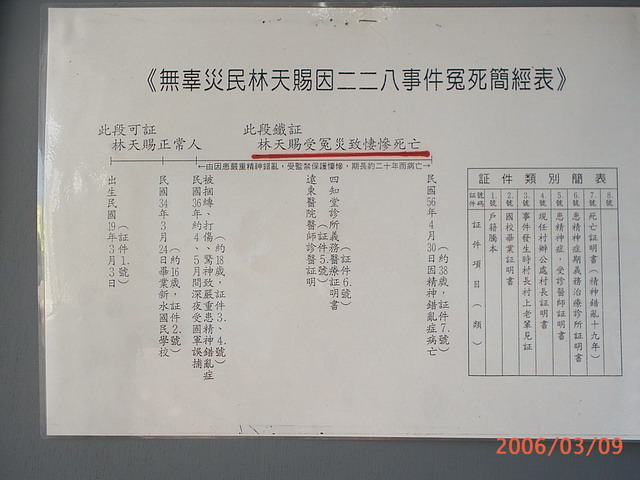 《無辜災民林天賜因二二八事件冤死簡經表》
此段可証
林天賜正常人
此段鐵証
林天賜受冤災致悽慘死亡
←由因患嚴重精神錯亂,受監禁保護悽慘,期長約二十年而病亡→
出生民國19年3月3日
(証件1.號)
民國34年3月24日畢業新水國民學校
(約16歲,証件2.號)
民國36年約4、5月間深夜受國軍誤捕
被捆縛、打傷、驚神致嚴重患精神錯亂症
(約18歲,証件3、4.號)
遠東醫院醫師診醫証明
(証件5.號)
四知堂診所義務醫療証明書
(証件6.號)
民國56年4月30日因精神錯亂症病亡
(約38歲,証件7.號)
証件類別簡表
証件號碼
1.號
2.號
3.號
4.號
5.號
6.號
7.號
8.號
証件項目(類)
戶籍謄本
國校畢業証明書
事件發生時村長村上老輩見証
現任村辦公處村長証明書
患精神症,受診醫師証明書
患精神症期義務治療診所証明書
死亡証明書(精神錯亂十九年)
2006/03/09